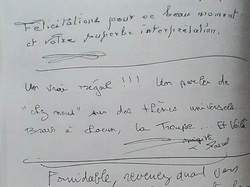 Félicitations pour ce beau moment
et votre superbe interprétation.
Un vrai régal !!! Un parler de
"chez nous" sur des thèmes universels.
Bravo à chacun, la Troupe... Et Voilà
Formidable, revenez quand vous